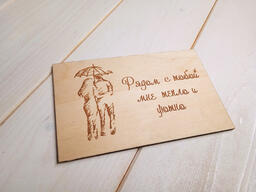 Рядом с тобой
мне тепло и
уютно